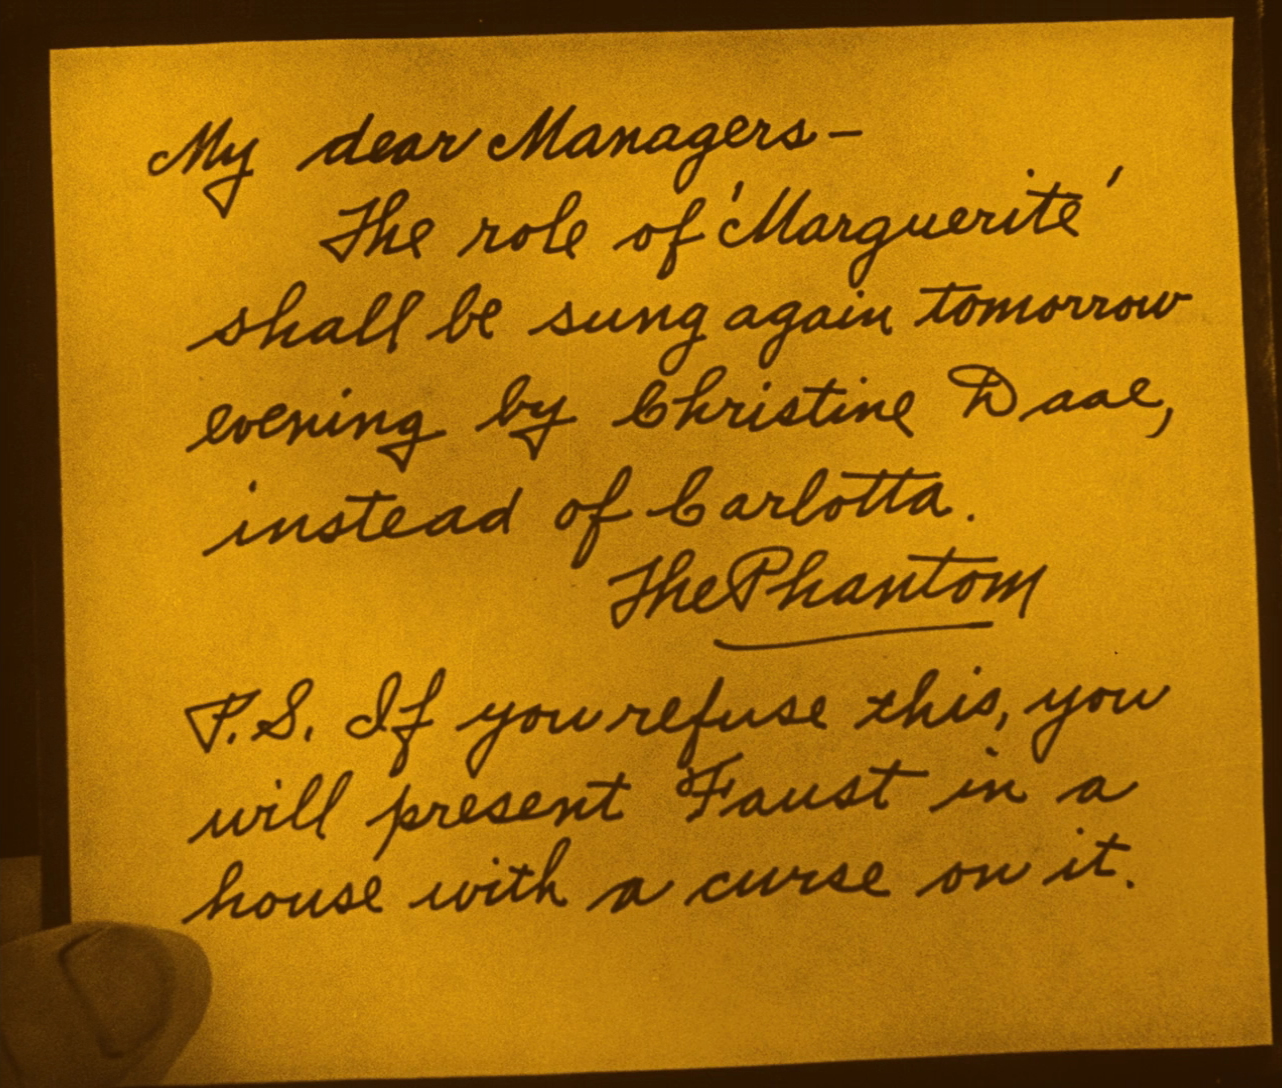 My dear Managers—
The role of 'Marguerite'
shall be sung again tomorrow
evening by Christine Daae,
instead of Carlotta.
The Phantom
P.S. If you refuse this, you
will present Faust in a
house with a curse on it.